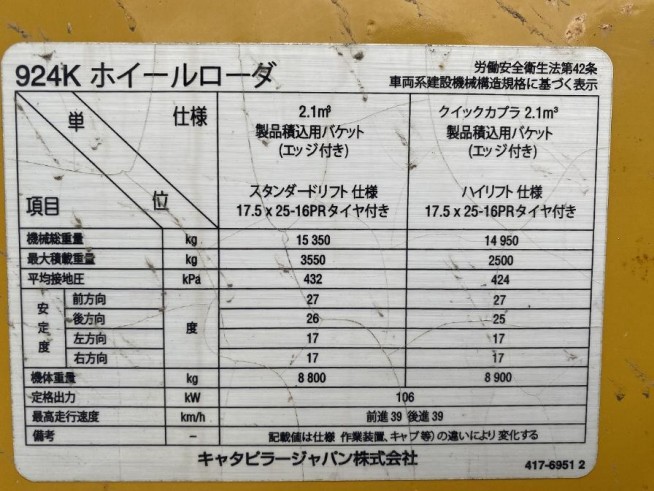 924K ホイールローダ
労働安全衛生法第42条
車両系建設機械構造規格に基づく表示
単 仕様
位
項目
2.1m³
製品積込用バケット
(エッジ付き)
スタンダードリフト 仕様
17.5 x 25-16PRタイヤ付き
クイックカプラ 2.1m³
製品積込用バケット
(エッジ付き)
ハイリフト 仕様
17.5 x 25-16PRタイヤ付き
機械総重量 kg 15 350 14 950
最大積載重量 kg 3550 2500
平均接地圧 kPa 432 424
安定度 度
前方向 27 27
後方向 26 25
左方向 17 17
右方向 17 17
機体重量 kg 8 800 8 900
定格出力 kW 106
最高走行速度 km/h 前進 39 後進 39
備考 – 記載値は仕様 作業装置、キャブ等)の違いにより変化する
キャタピラージャパン株式会社
417-6951 2